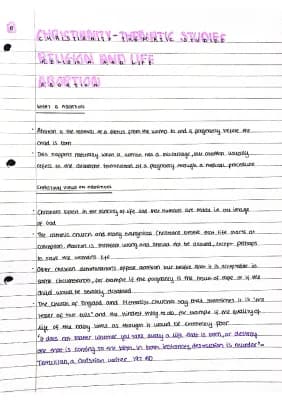 CHRISTIANITY - THEMATIC STUDIES
RELIGION AND LIFE
ABORTION
WHAT IS ABORTION
Abortion is the removal of a foetus from the womb to end a pregnancy before the
child is born
This happens naturally when a woman has a miscarriage, but abortion usually
refers to the deliberate termination of a pregnancy through a medical procedure
CHRISTIAN VIEWS ON ABORTION
Christians believe in the sanctity of life and that humans are made in the image
of God
The Catholic Church and many Evangelical Christians believe that life starts at
conception. Abortion is therefore wrong and should not be allowed, except perhaps
to save the woman's life
Other Christian denominations oppose abortion but believe that it is acceptable in
some circumstances, for example if the pregnancy is the result of rape or if the
child would be severely disabled
The Church of England and Methodist Churches say that sometimes it is 'the
lesser of two evils' and the kindest thing to do, for example if the quality of
life of the baby were as though it would be extremely poor
"It does not matter whether you take away a life that is born, or destroy
one that is coming to the birth. In both instances, destruction is murder" -
Tertullian, a Christian writer